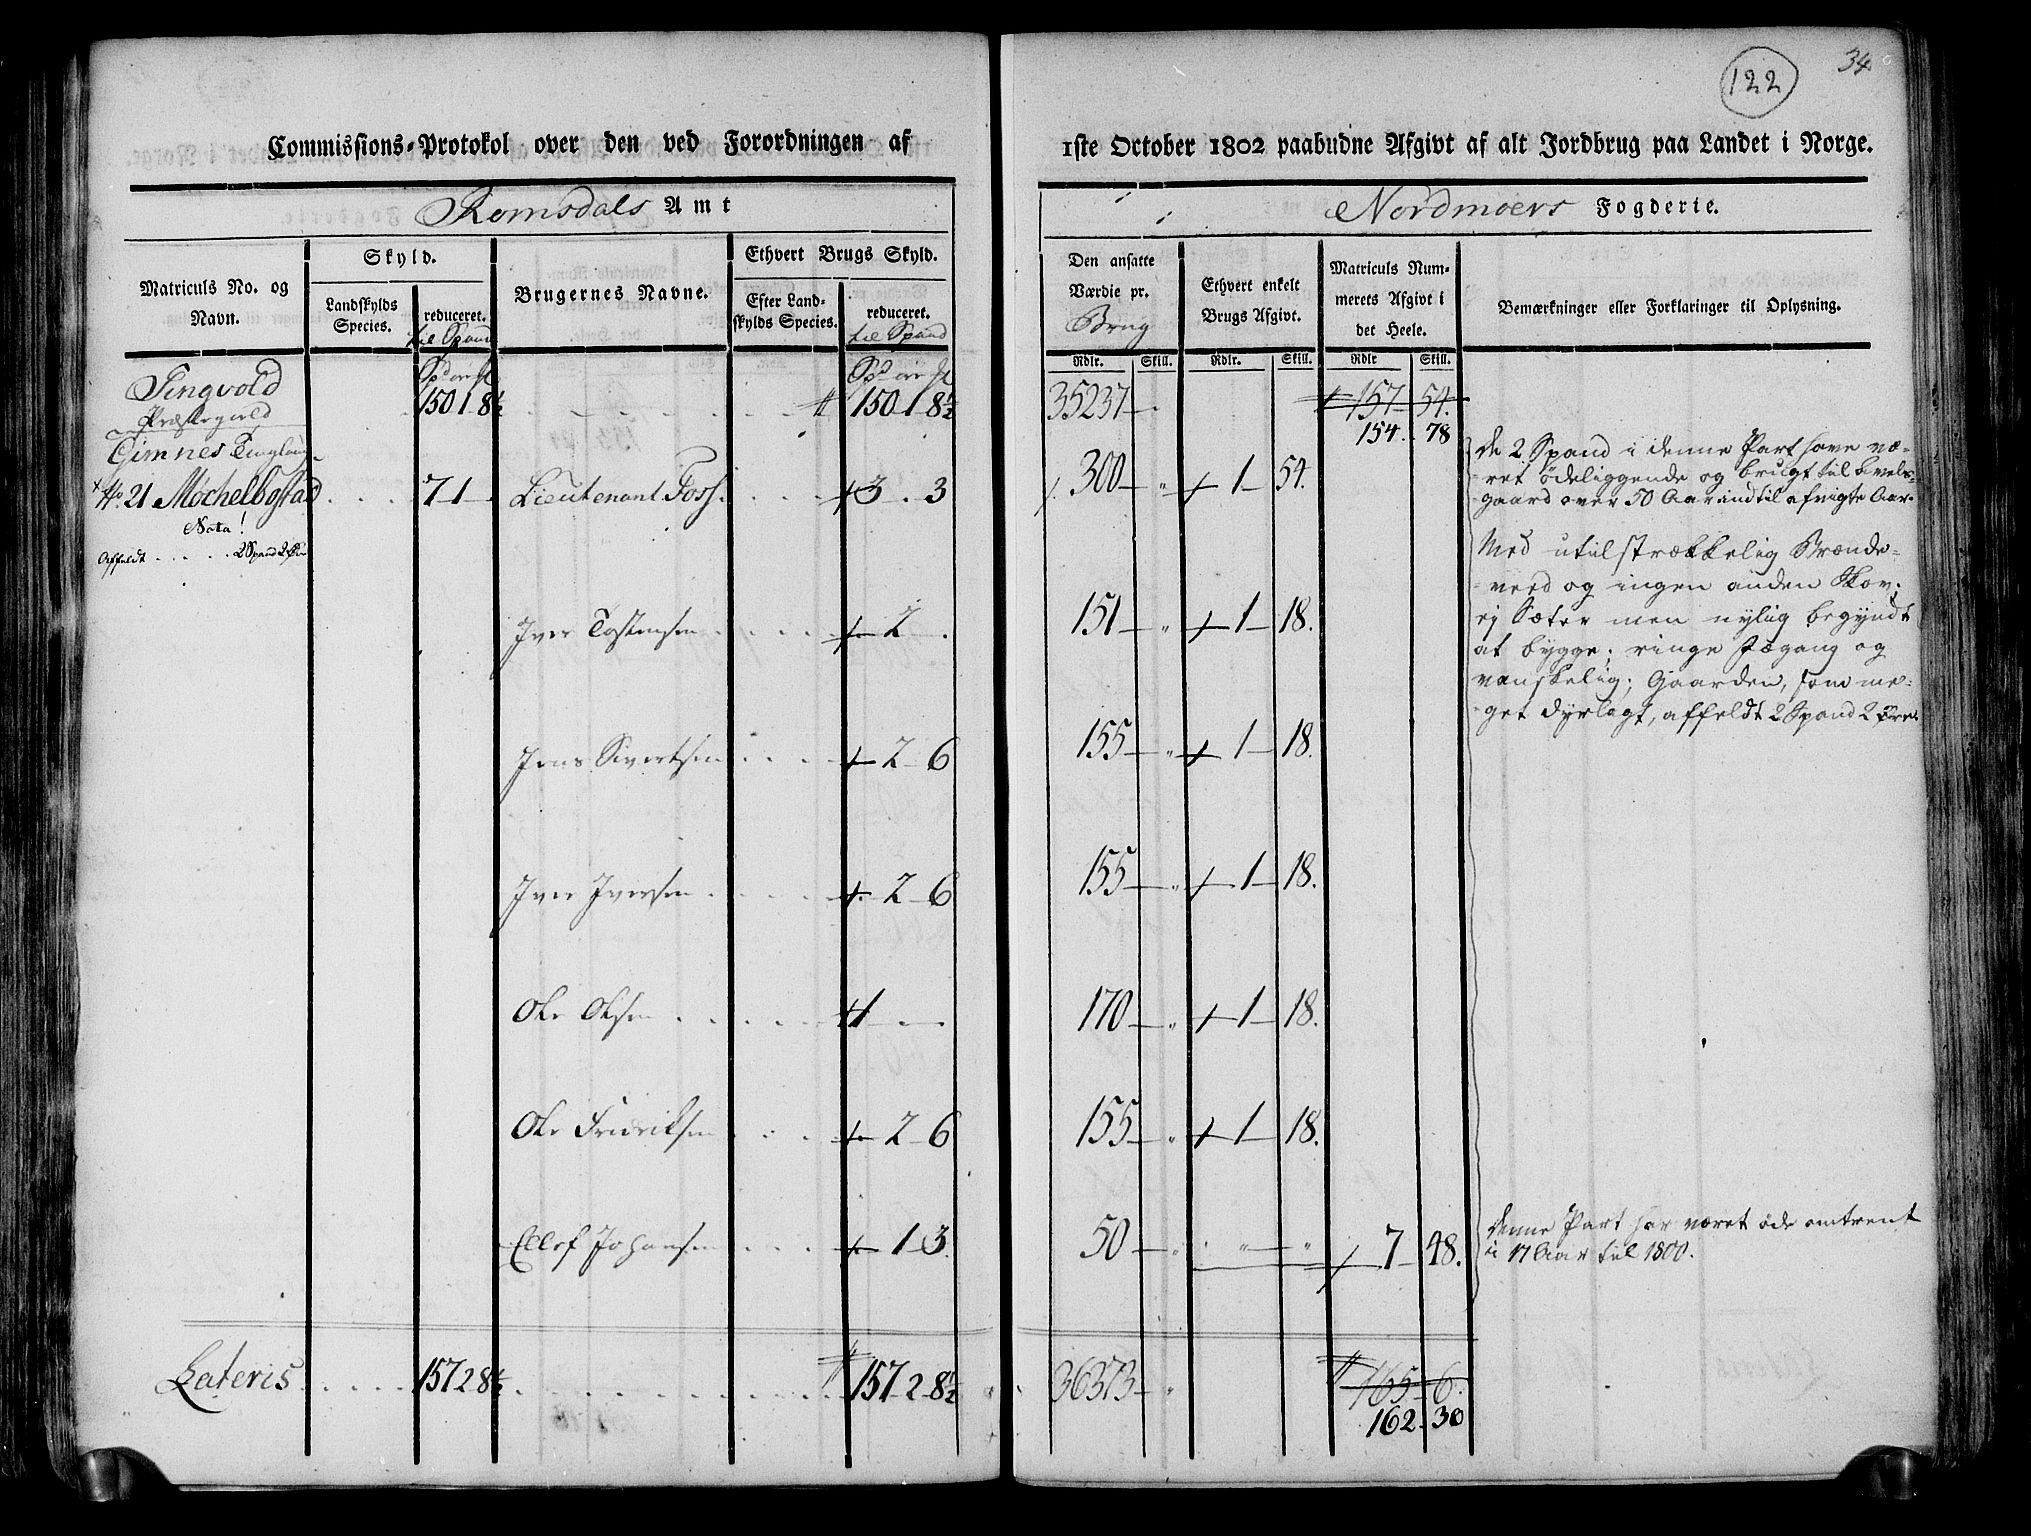 122
34
Commissions-Protokol over den ved Forordningen af 1ste October 1802 paabudne Afgivt af alt Jordbrug paa Landet i Norge.
Romsdals Amt
Nordmoers Fogderie.
Matriculs No. og Navn.
Skyld.
Landskylds Species.
reduceret. til Spand
Brugernes Navne.
Ethvert Brugs Skyld.
Efter Landskylds Species.
reduceret. til Spand
Den ansatte Værdie pr. Brug
Ethvert enkelt Brugs Afgivt.
Matriculs Nummerets Afgivt i det Heele.
Bemærkninger eller Forklaringer til Oplysning.
Rdlr. Skill. Rdlr. Skill. Rdlr Skill.
Tingvold 150 1 8½ 150 1 8½ 35237 157 54.
Præstegield 154. 78
Gimnes Tinglaug
No. 21 Møchelbostad 7 1 Lieutenant Foss 3 3 300 1 54.
Nota!
Affeldt 2 Spand 2 Øre
De 2 Spand i denne Part have væ-
ret ødeliggende og brugt til Avels-
gaard over 50 Aar indtil afvigte Aar.
Med utilstrækkelig Brænde-
veed og ingen anden Skov;
ej Sæter men nylig begyndt
at bygge; ringe Jægang og
vanskelig; Gaarden, som me-
get dyrlagt, affeldt 2 Spand 2 Øre.
Iver Tostensen 2 151 1 18.
Jens Sivertsen 2 6 155 1 18.
Iver Iversen 2 6 155 1 18.
Ole Olsen 1 170 1 18.
Ole Fridriksen 2 6 155 1 18.
Ellef Johansen 1 3. 50 " " 7 48.
Denne Part har været øde omtrent
i 17 Aar til 1800.
Lateris 157 2 8½ 157 2 8½ 36373 165 6.
162. 30